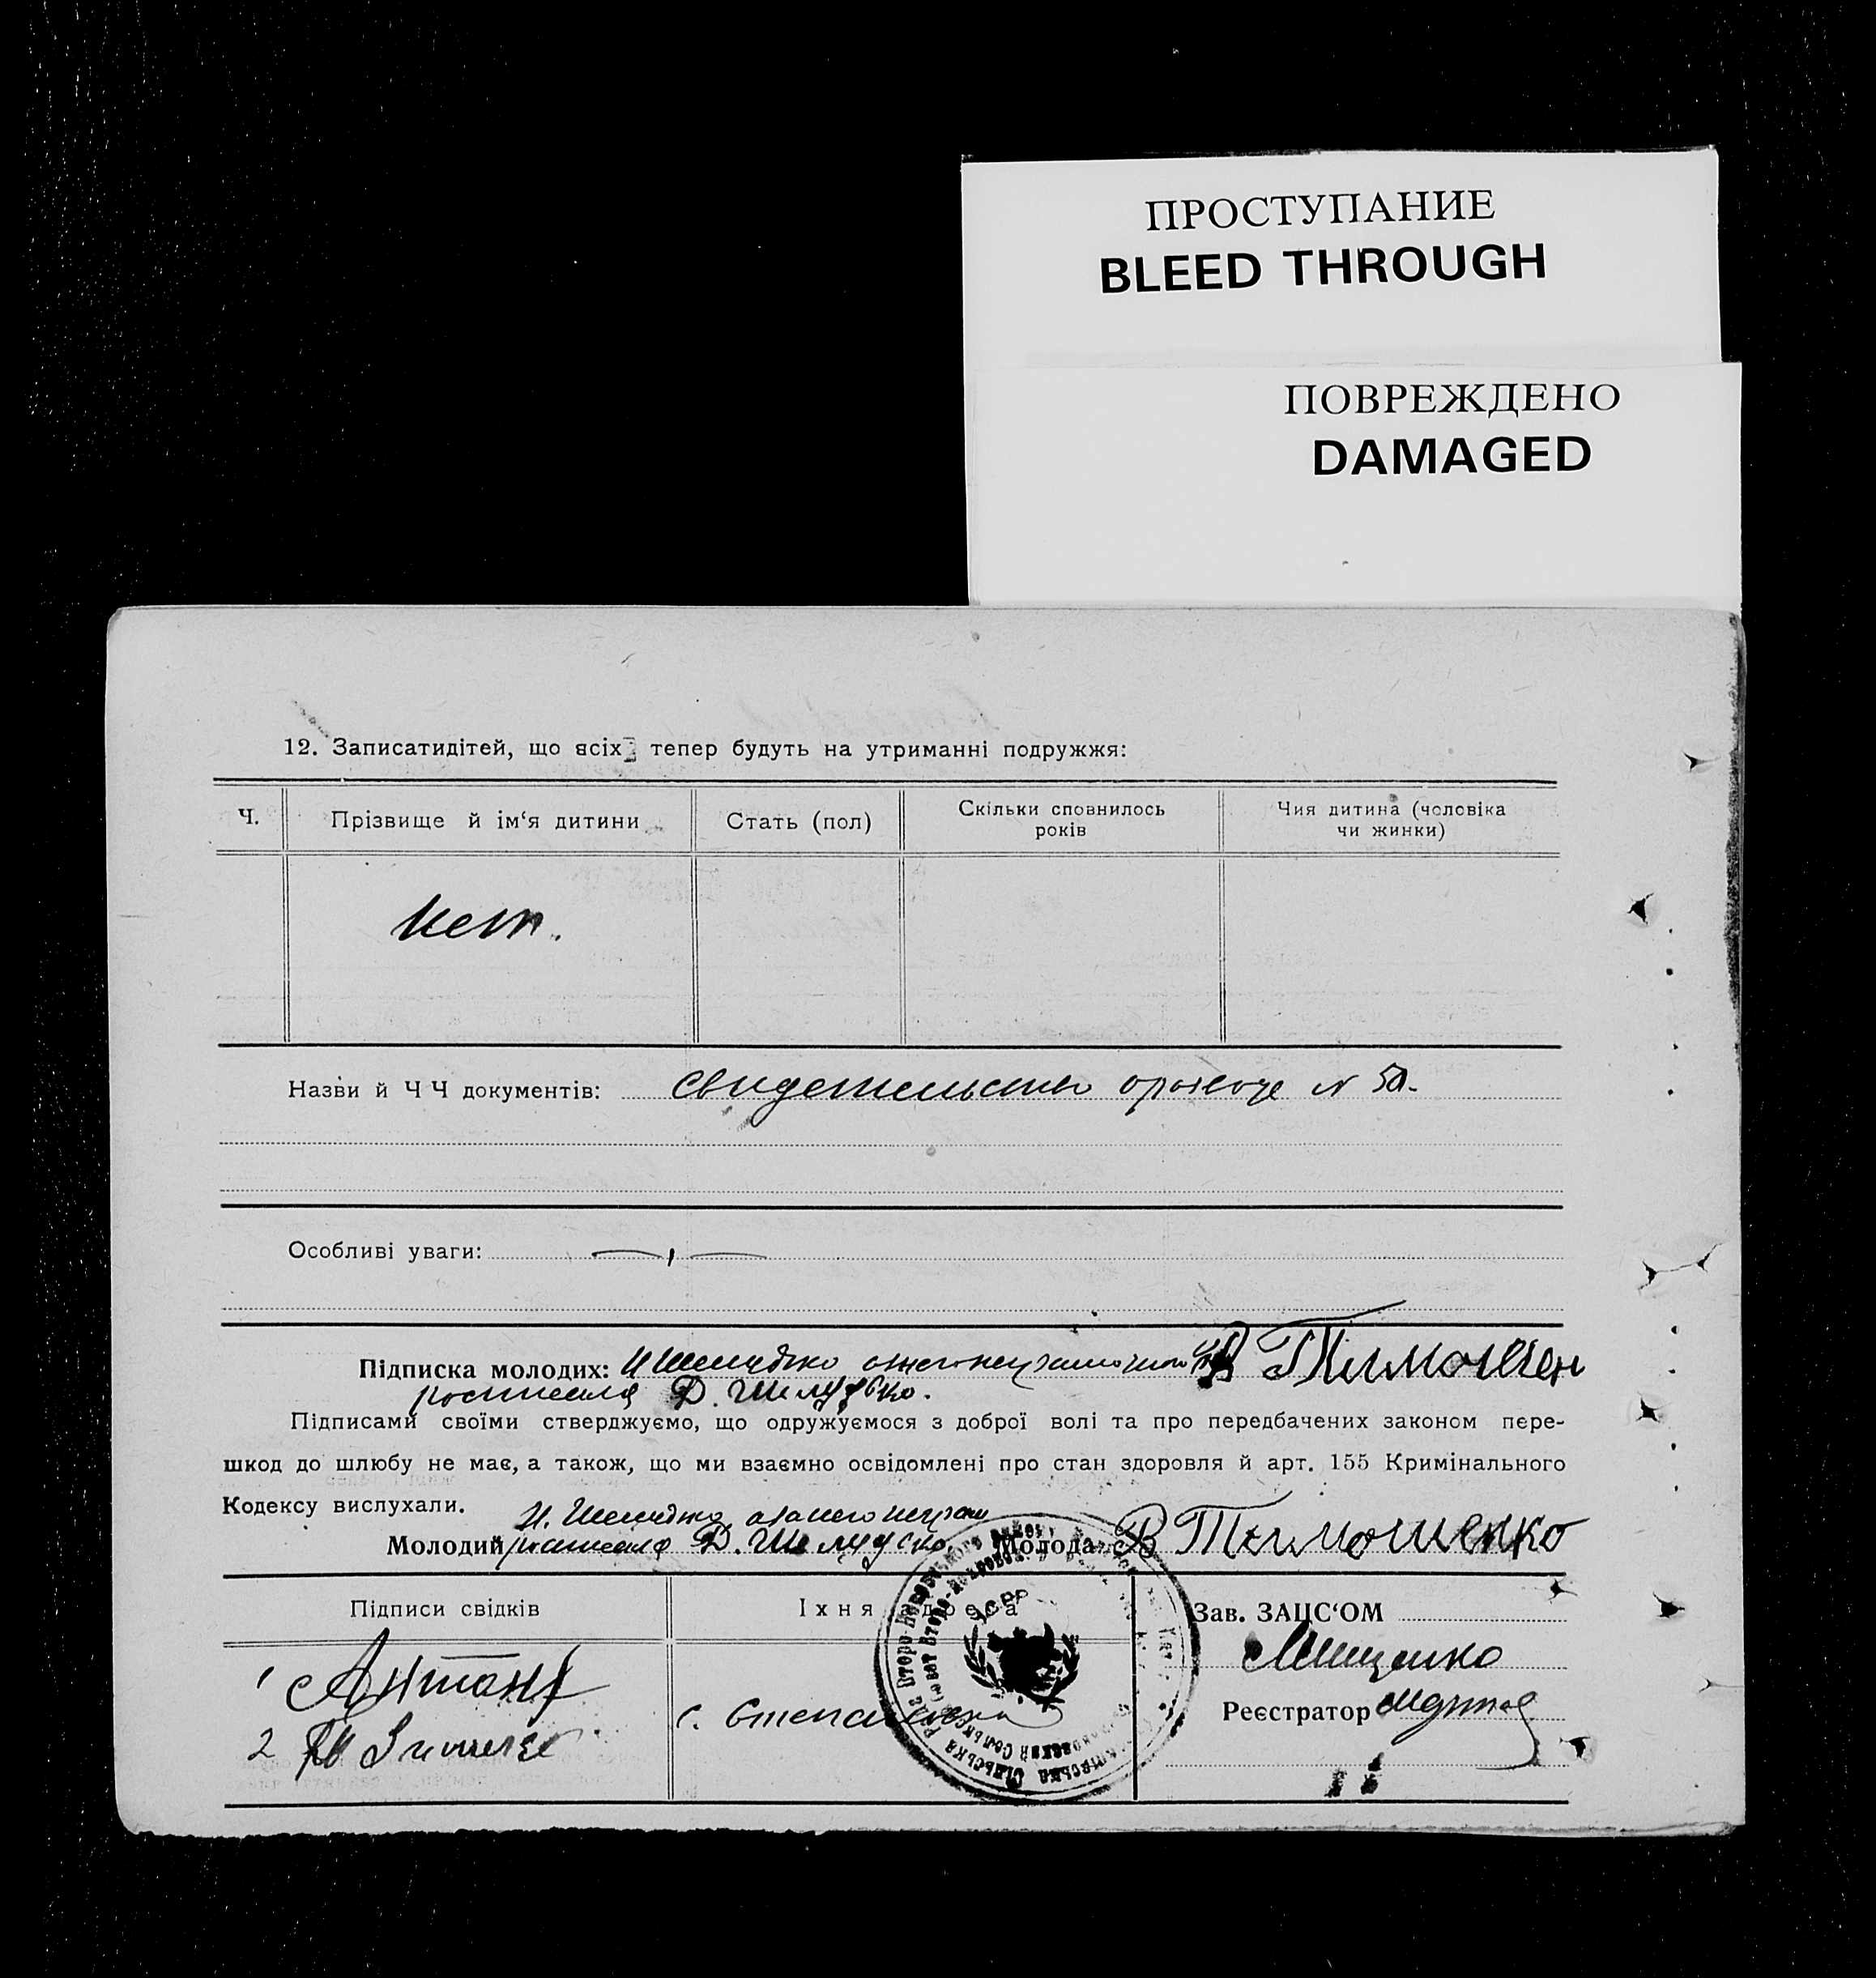 ПРОСТУПАНИЕ
BLEED THROUGH
ПОВРЕЖДЕНО
DAMAGED
12. Записатидітей, що всіх тепер будуть на утриманні подружжя:
Ч.
Прізвище й ім‘я дитини
Стать (пол)
Скільки сповнилось
років
Чия дитина (чоловіка
чи жинки)
нет.
Назви й Ч Ч документів: свидетельство N 50.
Особливі уваги:
Підписка молодих: И Шелудько В Тимошен
росписался Д. Шелудько.
Підписами своїми стверджуємо, що одружуємося з доброї волі та про передбачених законом пере-
шкод до шлюбу не має, а також, що ми взаємно освідомлені про стан здоровля й арт. 155 Кримінального
Кодексу вислухали.
И. Шелудько
Молодий росписался Д. Шелудько. Молода В Тимошенко
Підписи свідків
Їхня адреса
Зав. ЗАЦС‘ОМ
Мищенко
1
2
с.
Реєстратор
УСРР